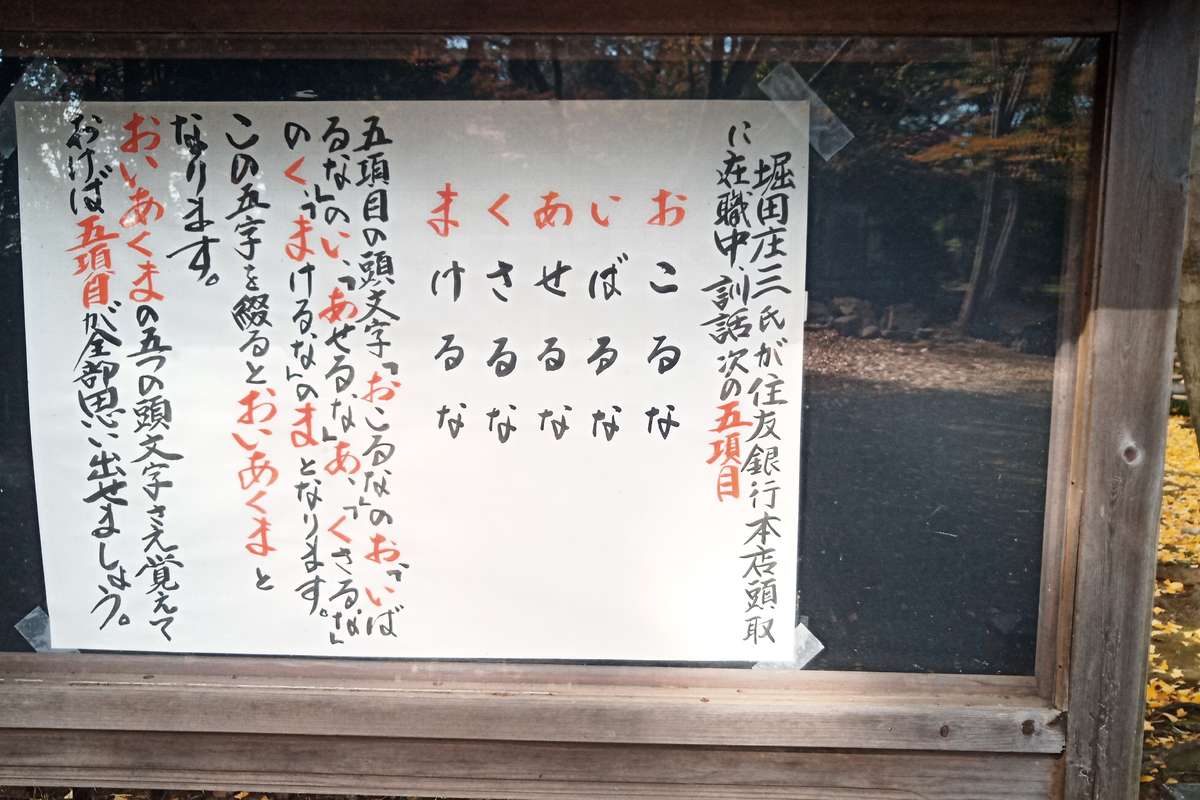 堀田庄三氏が住友銀行本店頭取
に在職中、訓話次の五項目
おこるな
いばるな
あせるな
くさるな
まけるな
五項目の頭文字「おこるな」のお、「いば
るな」のい、「あせるな」あ、「くさるな」
のく、「まけるな」のまとなります。
この五字を綴るとおいあくまと
なります。
おいあくまの五つの頭文字さえ覚えて
おけば五項目が全部思い出せましょう。